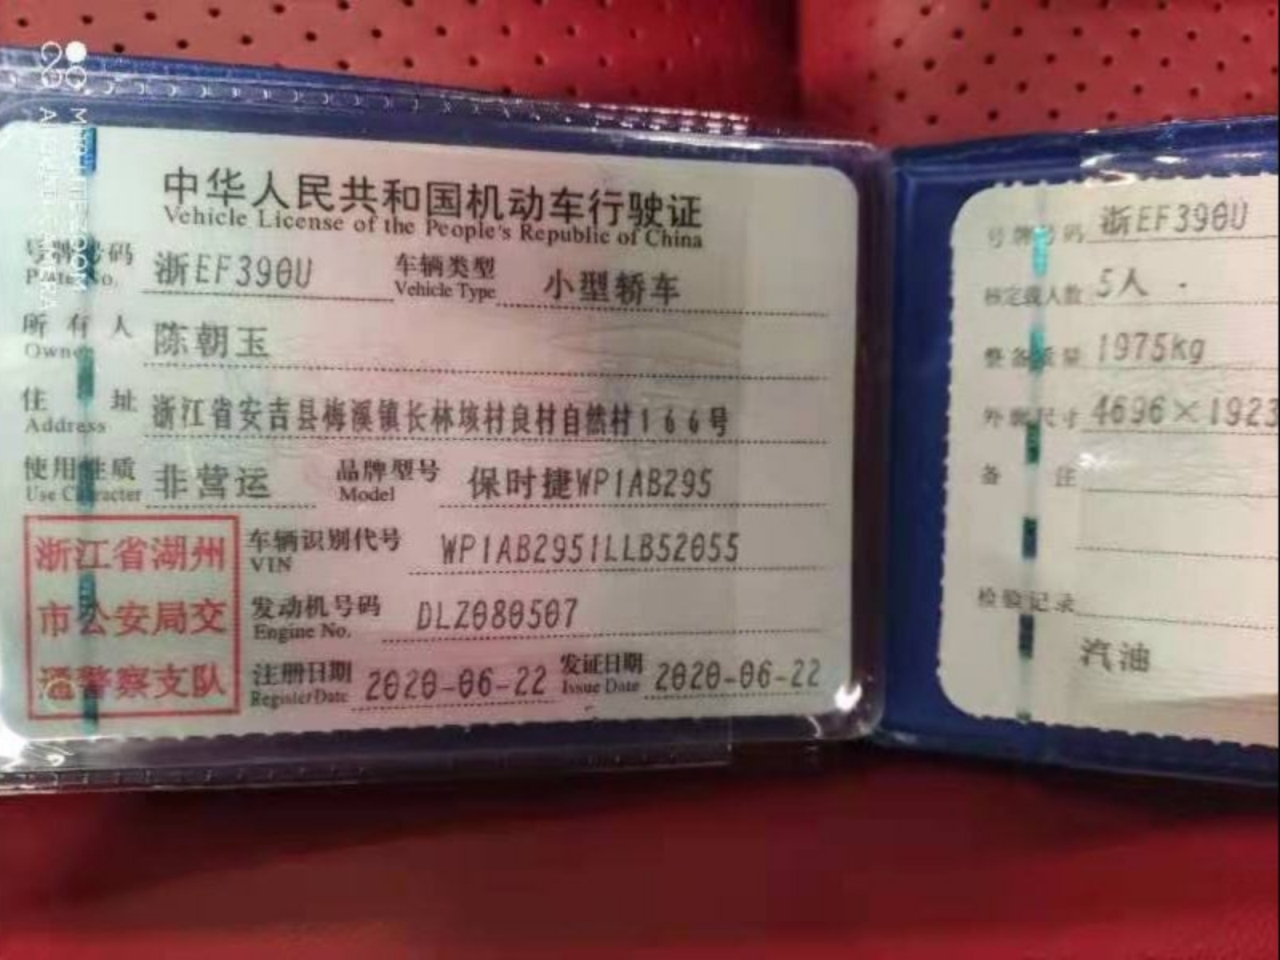 中华人民共和国机动车行驶证
Vehicle License of the People's Republic of China
号牌号码 浙EF390U 车辆类型 小型轿车
Plate No. Vehicle Type
所有人 陈朝玉
Owner
住址 浙江省安吉县梅溪镇长林垓村良村自然村166号
Address
使用性质 非营运 品牌型号 保时捷WP1AB295
Use Character Model
浙江省湖州
市公安局交
通警察支队
车辆识别代号 WP1AB2951LLB52055
VIN
发动机号码 DLZ080507
Engine No.
注册日期 2020-06-22 发证日期 2020-06-22
Register Date Issue Date
号牌号码 浙EF390U
核定载人数 5人
整备质量 1975kg
外廓尺寸 4696×1923
备注
检验记录
汽油